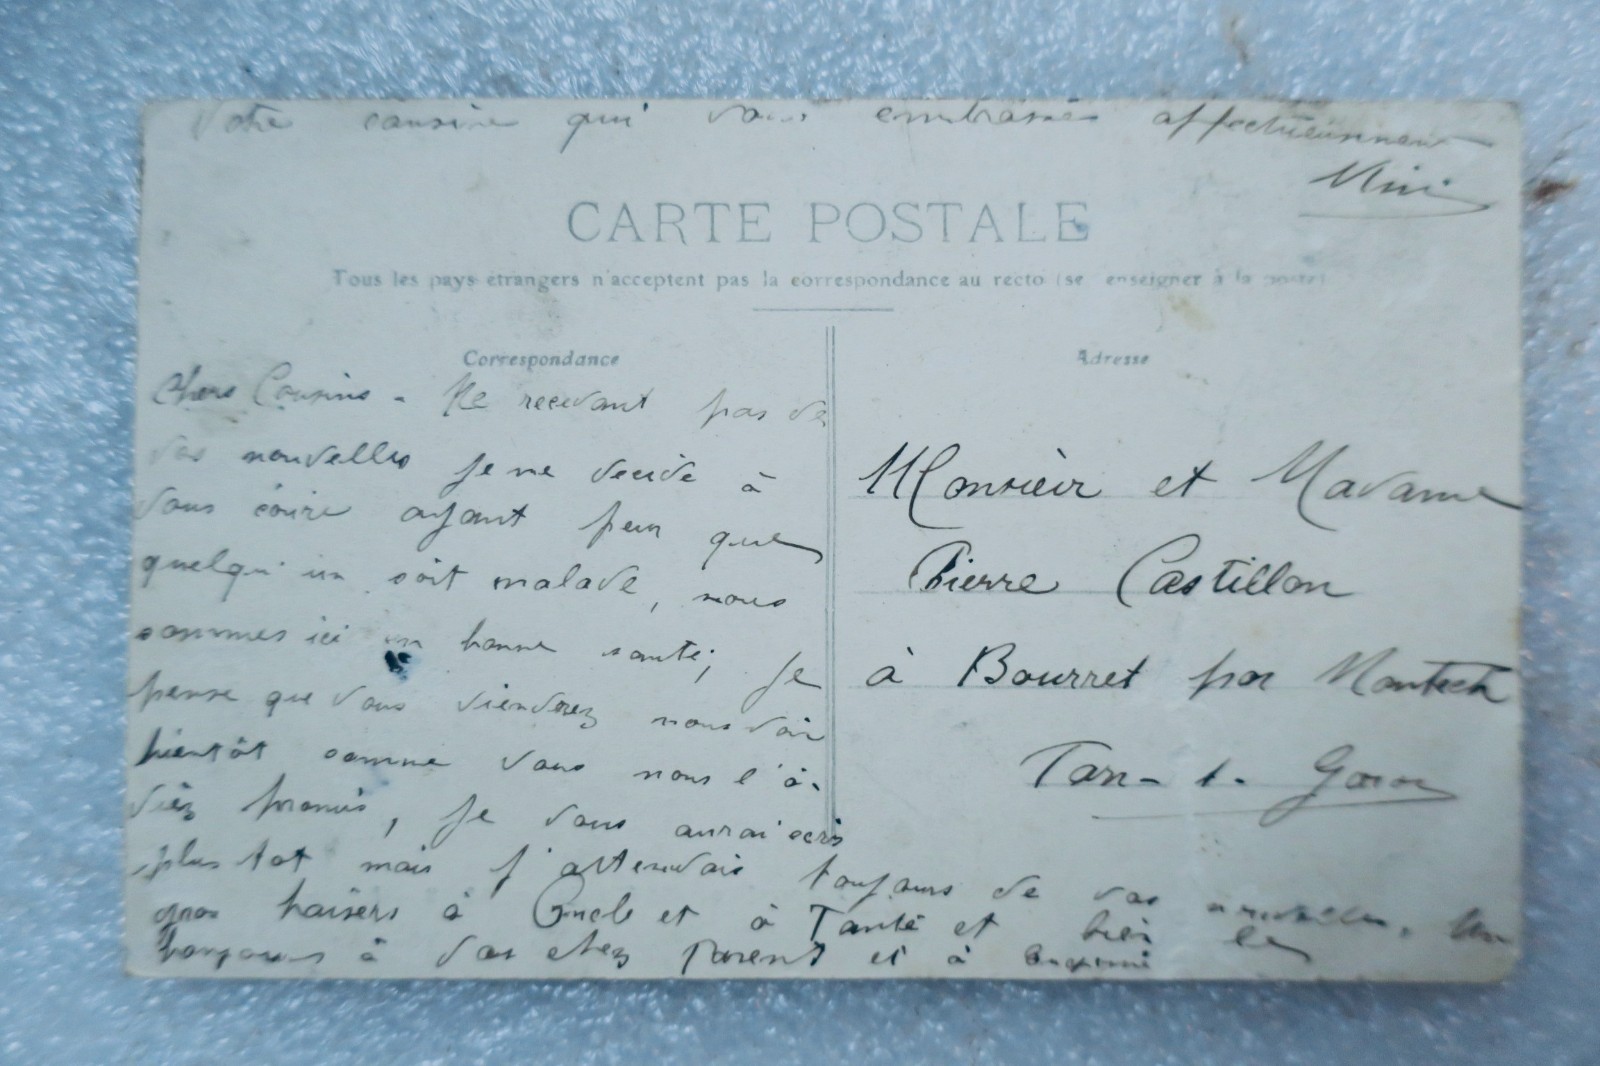 Votre cousine qui vous embrasse affectueusement
Mimi
CARTE POSTALE
Tous les pays étrangers n'acceptent pas la correspondance au recto (se renseigner à la poste)
Correspondance
Chers Cousins - Ne recevant pas de
vos nouvelles je me decide à
vous écrire ayant peur que
quelqu'un soit malade, nous
sommes ici en bonne santé; je
pense que vous viendrez nous voir
bientôt comme vous nous l'a-
viez promis, je vous aurai ecris
plus tot mais j'attendais toujours de vos nouvelles. Un
gros baisers à Oncle et à Tante et bien le
bonjour à vos chez parent et à
Adresse
Monsieur et Madame
Pierre Castillon
à Bourret par Montech
Tarn-t-Garon